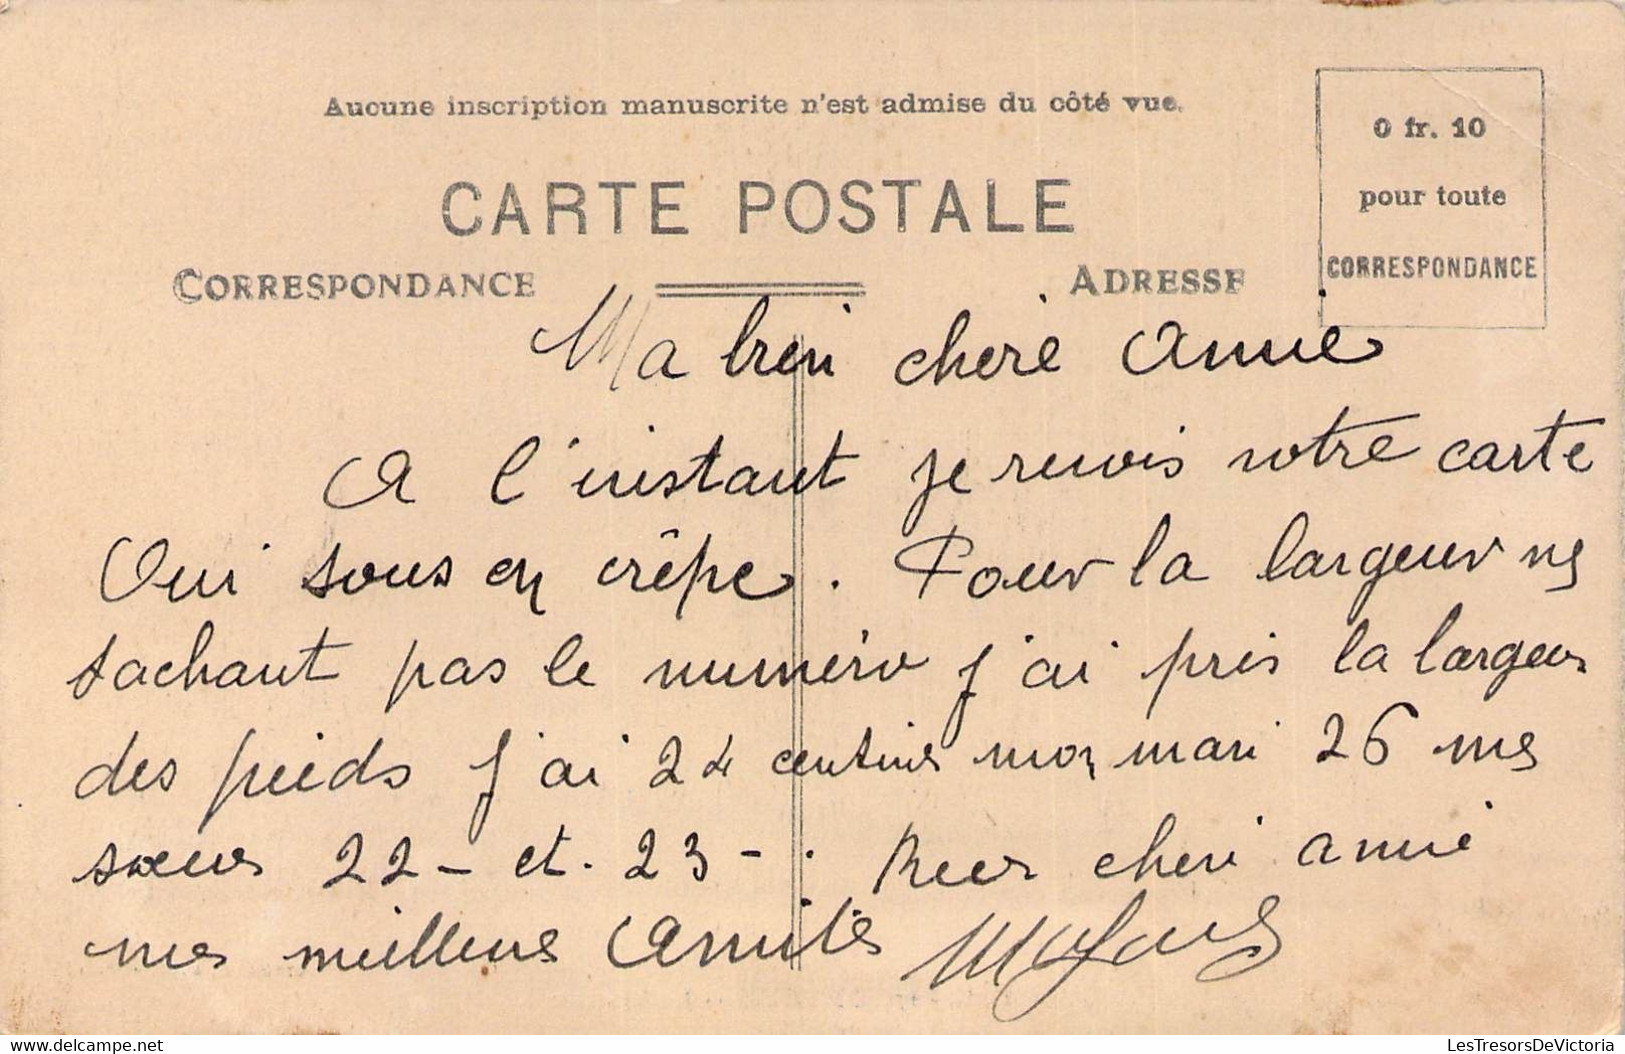 Aucune inscription manuscrite n'est admise du côté vue.
0 fr. 10
pour toute
CORRESPONDANCE
CARTE POSTALE
CORRESPONDANCE
ADRESSE
Ma bien chere Annie
A l'instant je recois votre carte
Oui sous en crêpe. Pour la largeur ne
sachant pas le numéro j'ai pris la largeur
des pieds j'ai 24 centimes mon mari 26 mes
sœurs 22 - et. 23 - . cheri annie
mes meilleure amitiés
Delcampe.net
LesTresorsDeVictoria